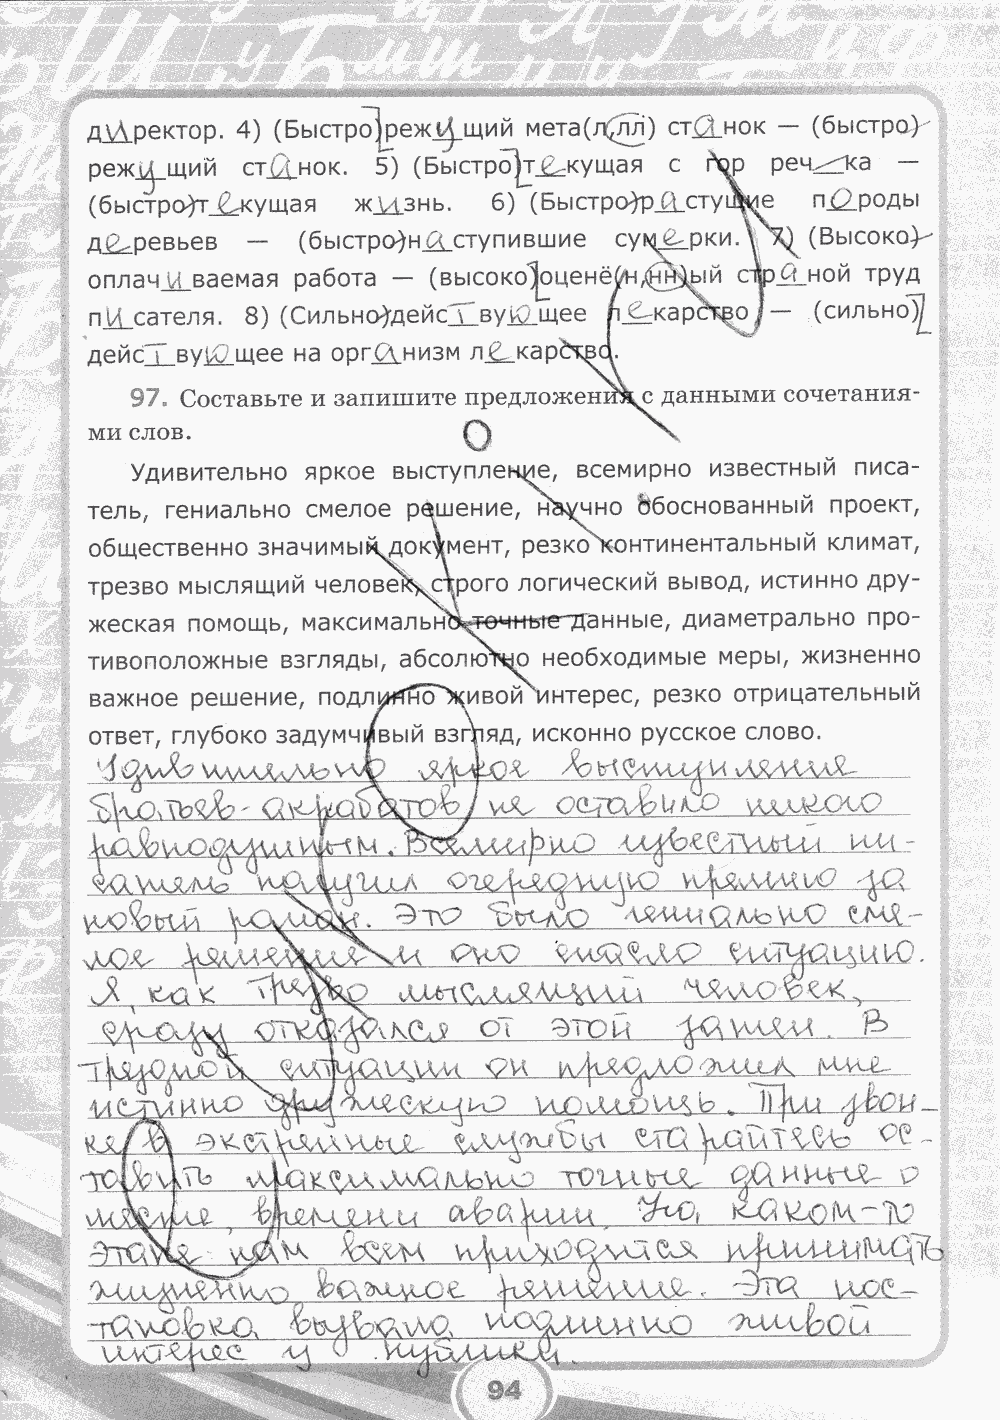 директор. 4) (Быстро)режущий мета(л,лл) станок — (быстро)
режущий станок. 5) (Быстро)текущая с гор речка —
(быстро)текущая жизнь. 6) (Быстро)растущие породы
деревьев — (быстро)наступившие сумерки. 7) (Высоко)
оплачиваемая работа — (высоко)оценё(н,нн)ый страной труд
писателя. 8) (Сильно)действующее лекарство — (сильно)
действующее на организм лекарство.
97. Составьте и запишите предложения с данными сочетания-
ми слов.
Удивительно яркое выступление, всемирно известный писа-
тель, гениально смелое решение, научно обоснованный проект,
общественно значимый документ, резко континентальный климат,
трезво мыслящий человек, строго логический вывод, истинно дру-
жеская помощь, максимально точные данные, диаметрально про-
тивоположные взгляды, абсолютно необходимые меры, жизненно
важное решение, подлинно живой интерес, резко отрицательный
ответ, глубоко задумчивый взгляд, исконно русское слово.
Удивительно яркое выступление
братьев-акрабатов не оставило никого
равнодушным. Всемирно известный пи-
сатель получил очередную премию за
новый роман. Это было гениально сме-
лое решение и оно спасло ситуацию.
Я, как трезво мыслящий человек,
сразу отказался от этой затеи. В
трудной ситуации он предложил мне
истинно дружескую помощь. При звон-
ке в экстренные службы старайтесь ос-
тавить максимально точные данные о
месте, времени аварии. На каком-то
этапе нам всем приходится принимать
жизненно важное решение. Эта пос-
тановка вызвала подлинно живой
интерес у публики.
94